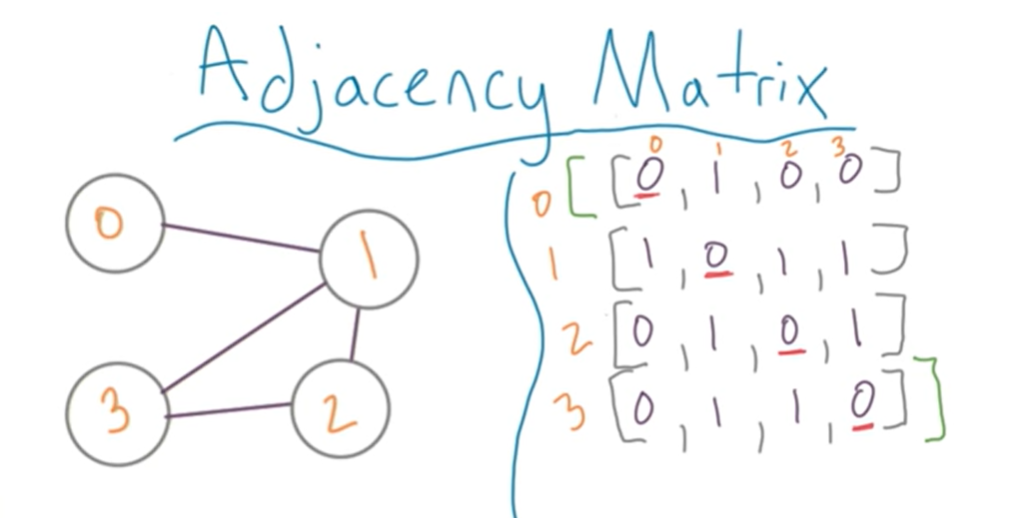 Adjacency Matrix
0 1 2 3
0 [ [0, 1, 0, 0]
1 [1, 0, 1, 1]
2 [0, 1, 0, 1]
3 [0, 1, 1, 0] ]
0
1
3
2